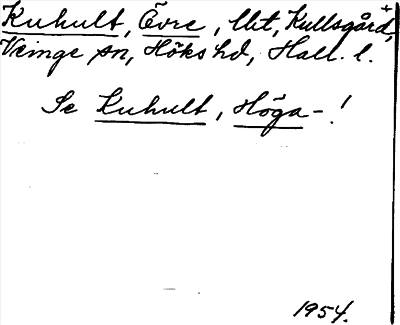 Kuhult, Övre, lht, Kullsgård,+
Veinge sn, Höks hd, Hall. l.
Se Kuhult, Höga-!
1954.